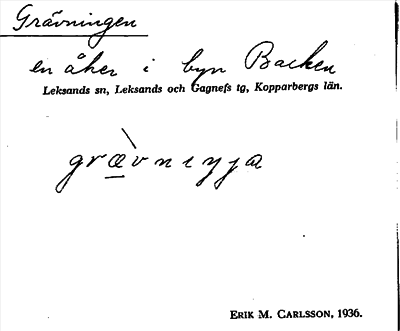 Grävningen
en åker i byn Backen
Leksands sn, Leksands och Gagnefs tg, Kopparbergs län.
grævnıŋja
ERIK M. CARLSSON, 1936.